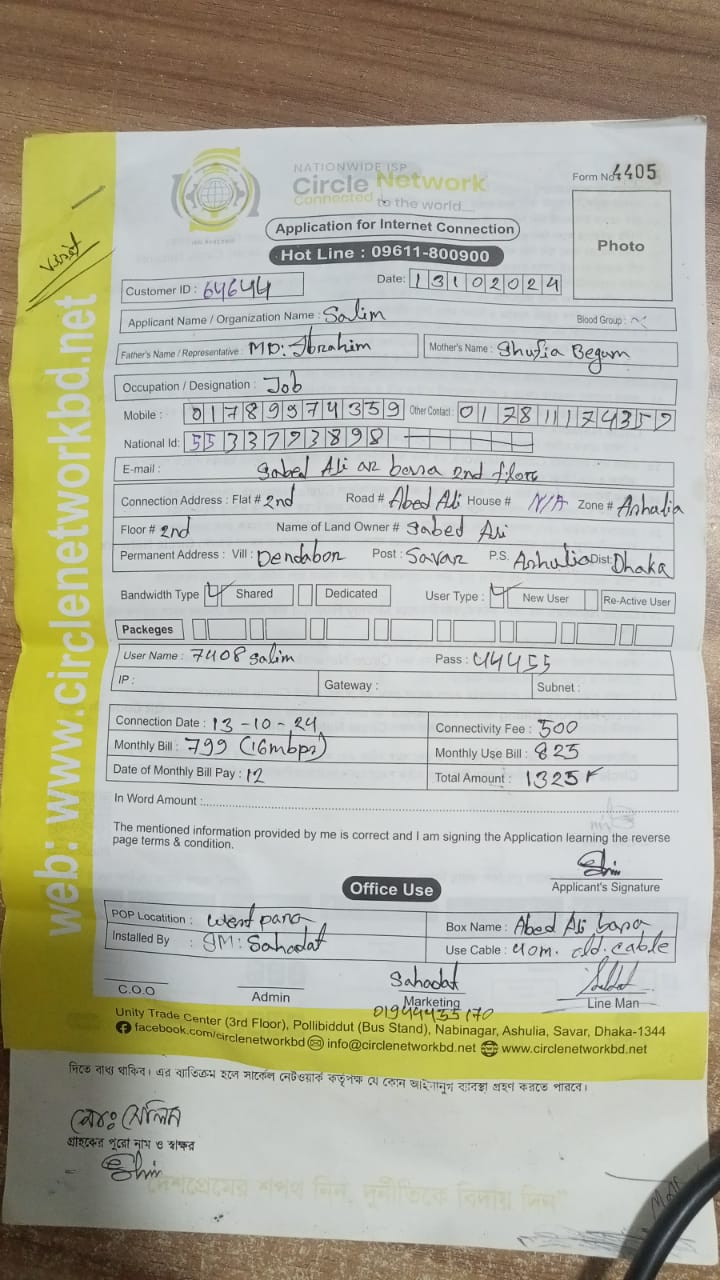 NATIONWIDE ISP
Circle Network
Connected to the world....
Form No: 4405
Application for Internet Connection
Hot Line : 09611-800900
Photo
Visit
Customer ID : 64644
Date: 13102024
Applicant Name / Organization Name : Salim
Blood Group :
Father's Name / Representative : MD: Ibrahim
Mother's Name : Shufia Begum
Occupation / Designation : Job
Mobile : 01789974359
Other Contact :
National Id: 5533793898
E-mail : Sabed Ali ar basa 2nd floor
Connection Address : Flat # 2nd Road # Abed Ali House # N/A Zone # Ashulia
Floor # 2nd Name of Land Owner # Sabed Ali
Permanent Address : Vill : Dendabor Post : Savar P.S. Ashulia Dist: Dhaka
Bandwidth Type Shared Dedicated User Type : New User Re-Active User
Packeges
User Name : 7408 salim Pass : 44455
IP : Gateway : Subnet :
Connection Date : 13-10-24
Connectivity Fee : 500
Monthly Bill : 799 (16mbps)
Monthly Use Bill : 825
Date of Monthly Bill Pay : 12
Total Amount : 1325
In Word Amount :
The mentioned information provided by me is correct and I am signing the Application learning the reverse
page terms & condition.
Applicant's Signature
Office Use
POP Locatition : west para
Box Name : Abed Ali basa
Installed By : SM: Sahadat
Use Cable : 40m. old. cable
Sahadat
C.O.O Admin Marketing Line Man
Unity Trade Center (3rd Floor), Pollibiddut (Bus Stand), Nabinagar, Ashulia, Savar, Dhaka-1344
facebook.com/circlenetworkbd info@circlenetworkbd.net www.circlenetworkbd.net
web: www.circlenetworkbd.net
দিতে বাধ্য থাকিব। এর ব্যতিক্রম হলে সার্কেল নেটওয়ার্ক কর্তৃপক্ষ যে কোন আইনানুগ ব্যবস্থা গ্রহণ করতে পারবে।
মোঃ সেলিম
গ্রাহকের পুরো নাম ও স্বাক্ষর
দেশপ্রেমের শপথ নিন, দুর্নীতিকে বিদায় দিন"